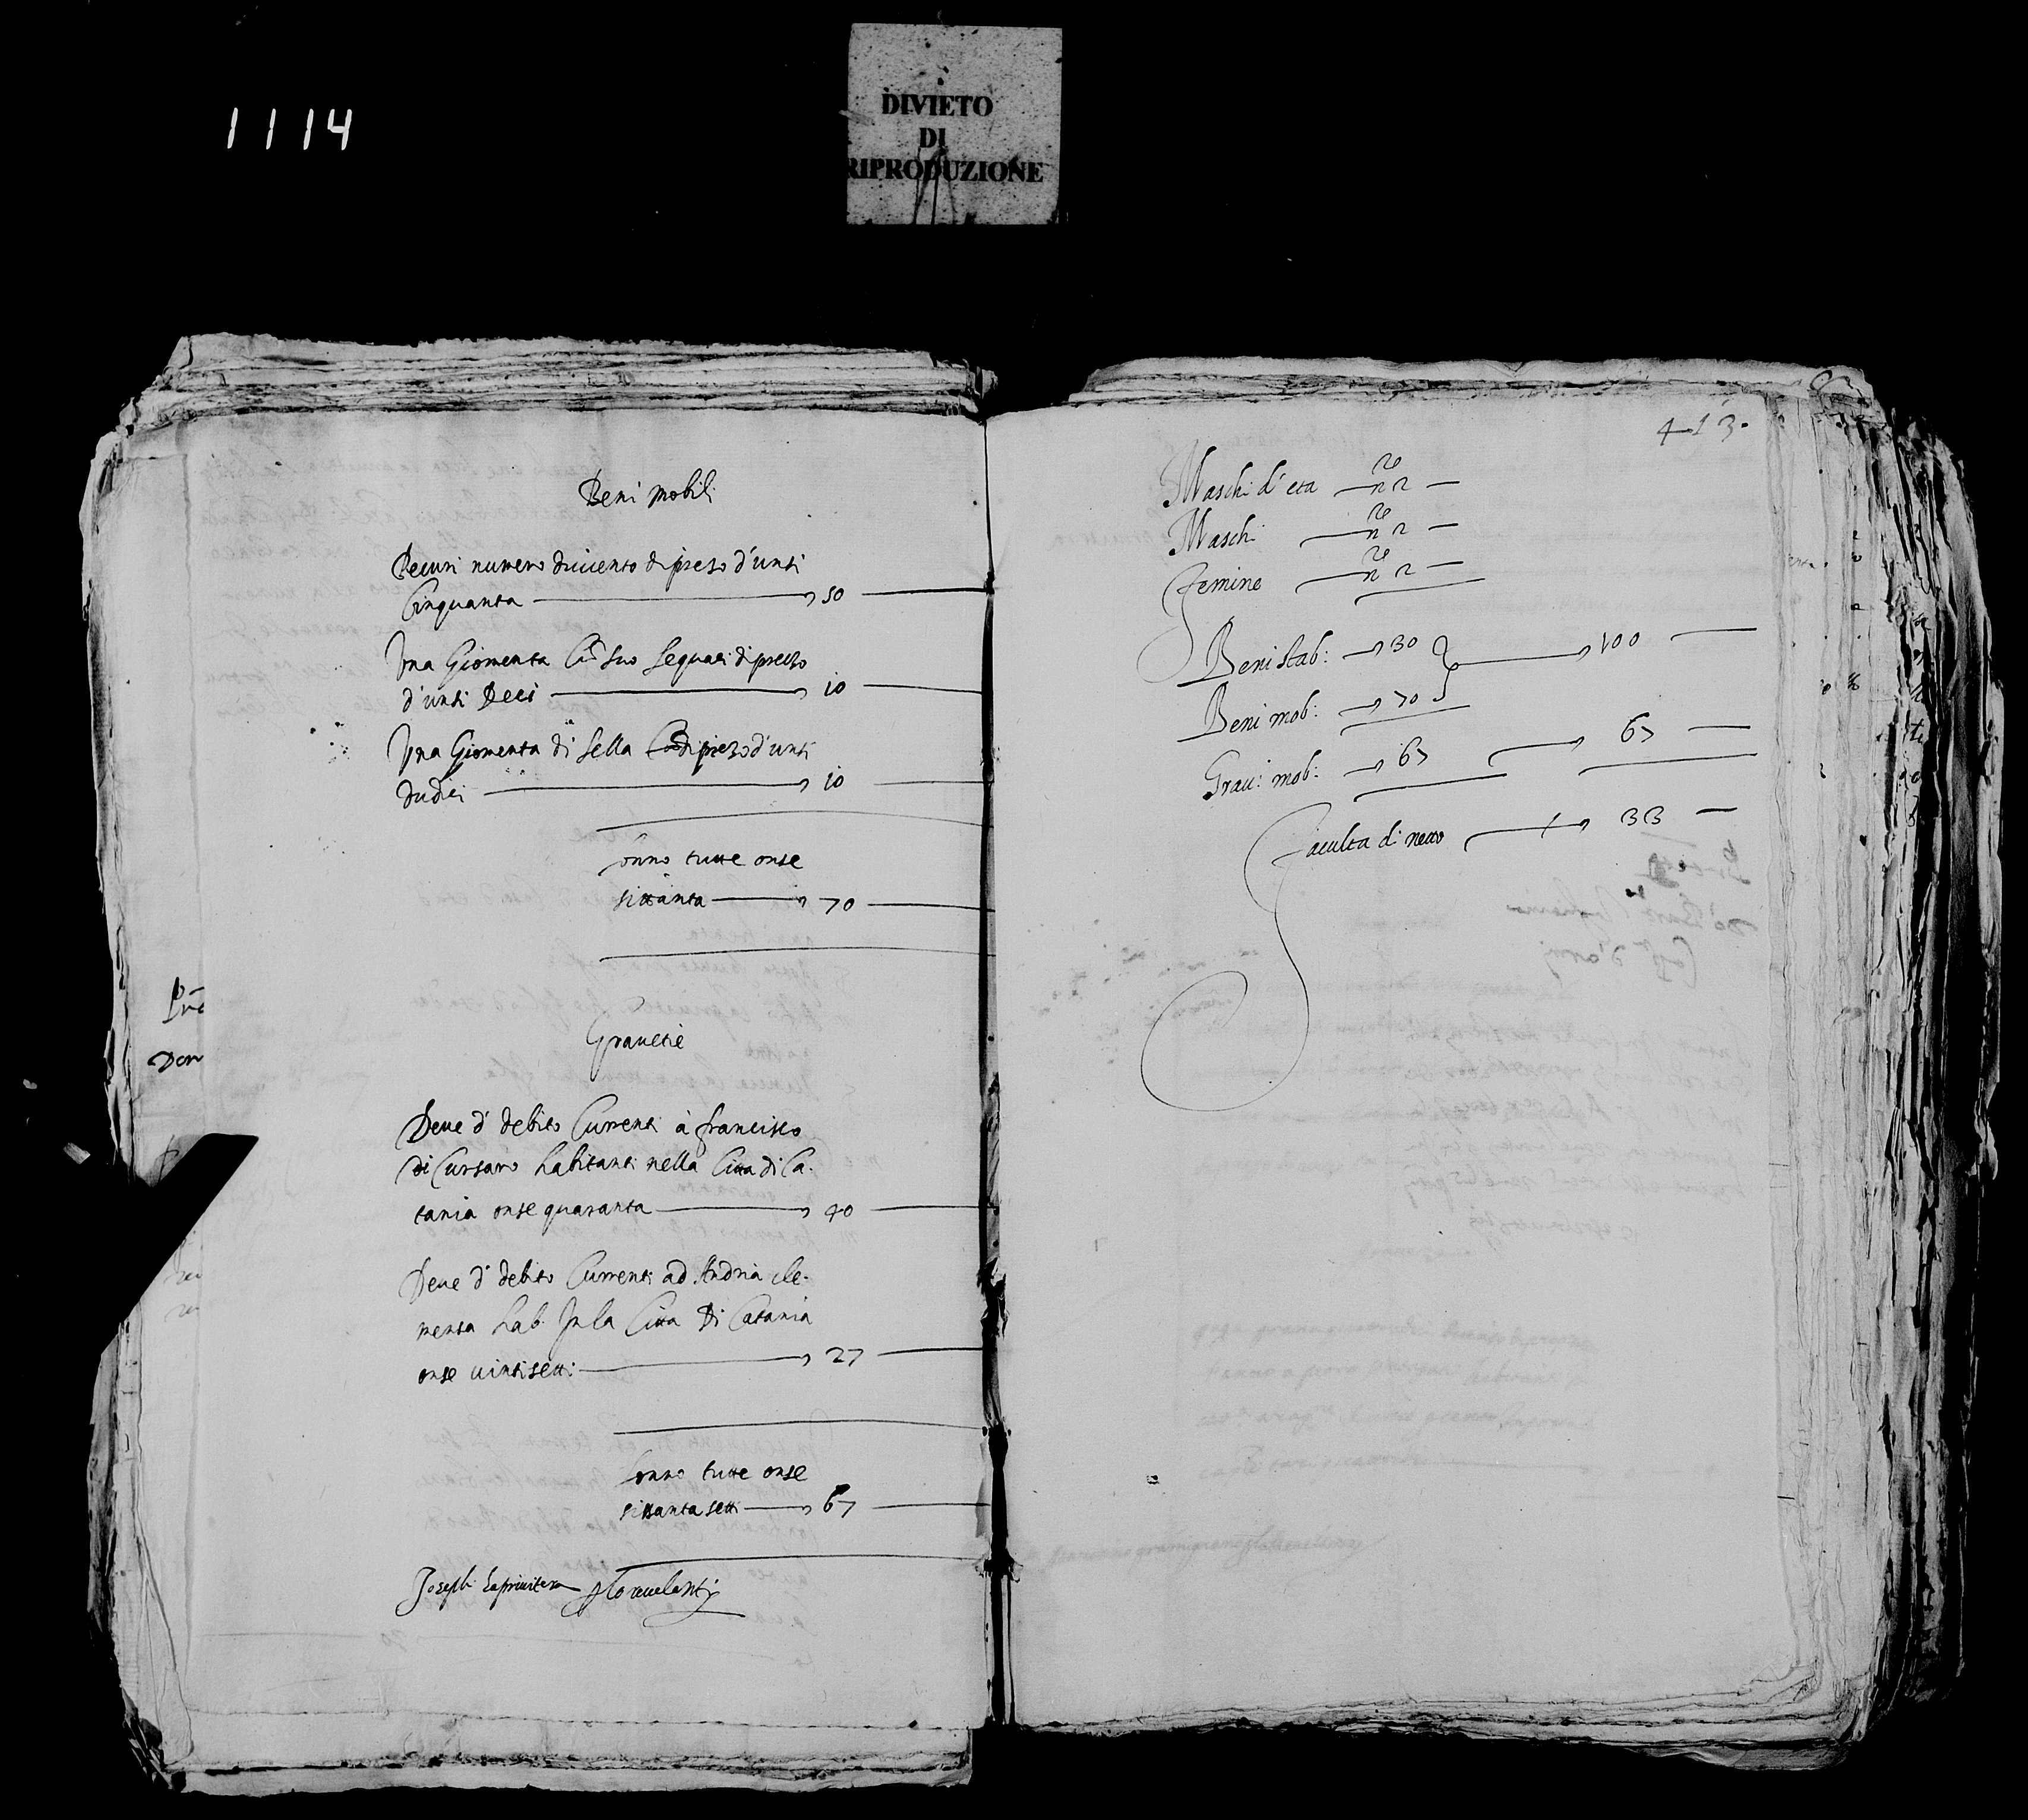 1114
DIVIETO
DI
RIPRODUZIONE
Beni mobili
Pecuri numero ducento di prezo d'unti
Cinquanta 50
Una Giomenta Cũ suo sequaci di prezzo
d'unti Deci 10
Una Giomenta di sella di prezo d'unti
Dudici 10
sonno tutte onse
sittanta 70
Gravezie
Deve d' debito Currenti à francisco
di Cursaro habitanti nella Citta di Ca-
tania onse quaranta 40
Deve d' debito Currenti ad Andria cle-
menza hab. In la Citta Di Catania
onse vintisetti 27
sonno tutte onse
sissanta setti 67
Joseph Laprivitera
413.
Maschi d' eta n.ro 2
Maschi n.ro 2
Femine n.ro 2
Beni stab: 30 100
Beni mob: 70
Grav: mob: 67 67
Faculta di netto 33